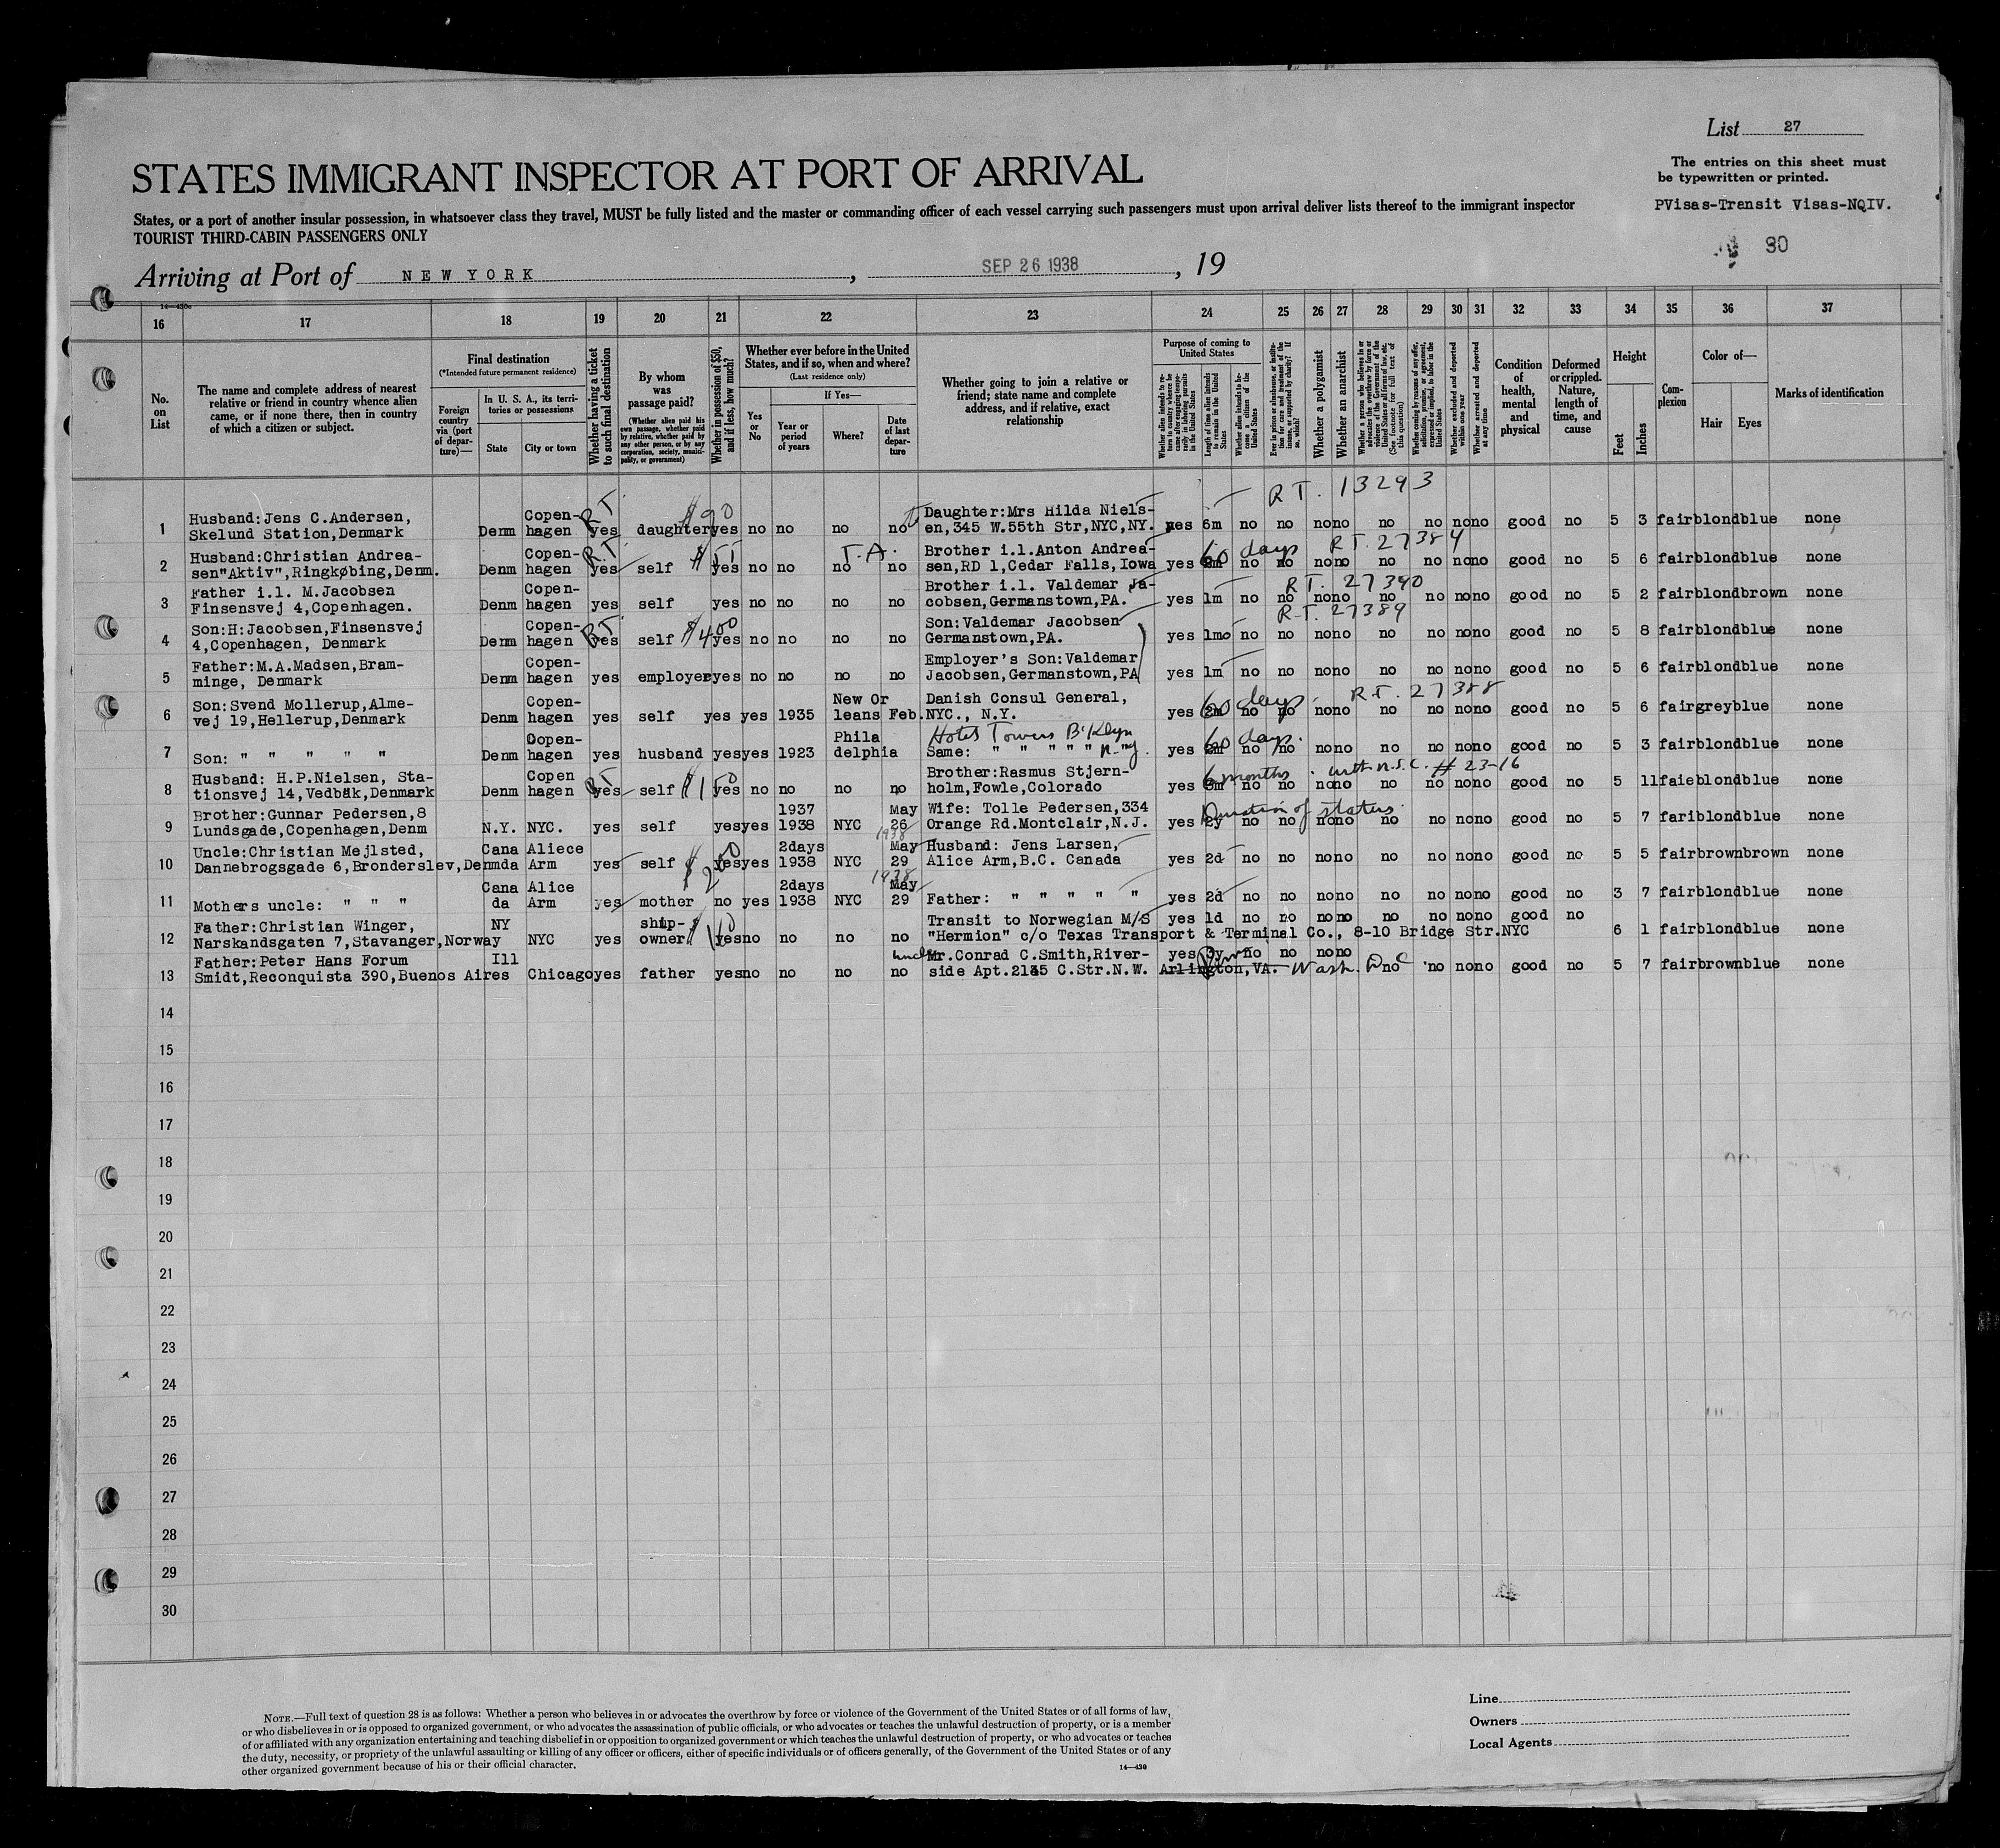 List 27
STATES IMMIGRANT INSPECTOR AT PORT OF ARRIVAL
The entries on this sheet must
be typewritten or printed.
States, or a port of another insular possession, in whatsoever class they travel, MUST be fully listed and the master or commanding officer of each vessel carrying such passengers must upon arrival deliver lists thereof to the immigrant inspector
TOURIST THIRD-CABIN PASSENGERS ONLY
PVisas-Transit Visas-NQIV.
30
Arriving at Port of NEW YORK, SEP 26 1938, 19
14—430e
16 17 18 19 20 21 22 23 24 25 26 27 28 29 30 31 32 33 34 35 36 37
No. on List
The name and complete address of nearest relative or friend in country whence alien came, or if none there, then in country of which a citizen or subject.
Final destination
(*Intended future permanent residence)
Foreign country via (port of departure)—
In U. S. A., its territories or possessions
State
City or town
Whether having a ticket to such final destination
By whom was passage paid?
(Whether alien paid his own passage, whether paid by relative, whether paid by any other person, or by any corporation, society, municipality, or government)
Whether in possession of $50, and if less, how much?
Whether ever before in the United States, and if so, when and where?
(Last residence only)
Yes or No
If Yes—
Year or period of years
Where?
Date of last departure
Whether going to join a relative or friend; state name and complete address, and if relative, exact relationship
Purpose of coming to United States
Whether alien intends to return to country whence he came after engaging temporarily in laboring pursuits in the United States
Length of time alien intends to remain in the United States
Whether alien intends to become a citizen of the United States
Ever in prison or almshouse, or institution for care and treatment of the insane, or supported by charity? If so, which?
Whether a polygamist
Whether an anarchist
Whether a person who believes in or advocates the overthrow by force or violence of the Government of the United States or all forms of law, etc. (See footnote for full text of this question)
Whether coming by reason of any offer, solicitation, promise, or agreement, expressed or implied, to labor in the United States
Whether excluded and deported within one year
Whether arrested and deported at any time
Condition of health, mental and physical
Deformed or crippled. Nature, length of time, and cause
Height
Feet
Inches
Complexion
Color of—
Hair
Eyes
Marks of identification
RT. 13293
1 Husband:Jens C.Andersen, Skelund Station,Denmark Denm Copenhagen RT yes daughter $90 yes no no no no Daughter:Mrs Hilda Nielsen,345 W.55th Str,NYC,NY. yes 6m no no no no no no no no good no 5 3 fair blond blue none
2 Husband:Christian Andreasen"Aktiv",Ringkøbing,Denm. Denm Copenhagen R.T. yes self $55 yes no no no T.A. no Brother i.l.Anton Andreasen,RD 1,Cedar Falls,Iowa yes 60 days RT.27384 no no no no no no no no good no 5 6 fair blond blue none
3 Father i.l. M.Jacobsen Finsensvej 4,Copenhagen. Denm Copenhagen yes self yes no no no no Brother i.l. Valdemar Jacobsen,Germanstown,PA. yes 1m RT. 27390 no no no no no no no no good no 5 2 fair blond brown none
4 Son:H:Jacobsen,Finsensvej 4,Copenhagen, Denmark Denm Copenhagen RT. yes self $400 yes no no no no Son:Valdemar Jacobsen Germanstown,PA. yes 1mo R-T. 27389 no no no no no no no no good no 5 8 fair blond blue none
5 Father:M.A.Madsen,Bramminge, Denmark Denm Copenhagen yes employer yes no no no no Employer's Son:Valdemar Jacobsen,Germanstown,PA yes 1m no no no no no no no no good no 5 6 fair blond blue none
6 Son:Svend Mollerup,Almevej 19,Hellerup,Denmark Denm Copenhagen yes self yes yes 1935 New Orleans Feb. Danish Consul General, NYC., N.Y. yes 60 days. R.T. 27388 no no no no no no no no good no 5 6 fair grey blue none
7 Son: " " " " " Denm Copenhagen yes husband yes yes 1923 Philadelphia Hotel Towers B'klyn N.Y. Same: " " " " " yes 60 days. no no no no no no no no good no 5 3 fair blond blue none
8 Husband: H.P.Nielsen, Stationsvej 14,Vedbæk,Denmark Denm Copenhagen RT yes self $150 yes no no no no Brother:Rasmus Stjernholm,Fowle,Colorado yes 6 months. with N.S.C. # 23-16 no no no no no no no no good no 5 11 faie blond blue none
9 Brother:Gunnar Pedersen,8 Lundsgade,Copenhagen,Denm N.Y. NYC. yes self yes yes 1937 1938 NYC May 26 1938 Wife: Tolle Pedersen,334 Orange Rd.Montclair,N.J. yes 2y Duration of status. no no no no no no no no good no 5 7 fari blond blue none
10 Uncle:Christian Mejlsted, Dannebrogsgade 6,Bronderslev,Denm Canada Aliece Arm yes self $200 yes yes 2days 1938 NYC May 29 1938 Husband: Jens Larsen, Alice Arm,B.C. Canada yes 2d no no no no no no no no good no 5 5 fair brown brown none
11 Mothers uncle: " " " Canada Alice Arm yes mother no yes 2days 1938 NYC May 29 Father: " " " " " yes 2d no no no no no no no no good no 3 7 fair blond blue none
12 Father:Christian Winger, Narskandsgaten 7,Stavanger,Norway NY NYC yes shipowner $10 yes no no no no Transit to Norwegian M/S "Hermion" c/o Texas Transport & Terminal Co., 8-10 Bridge Str.NYC yes 1d no no no no no no no no good no 6 1 fair blond blue none
13 Father:Peter Hans Forum Smidt,Reconquista 390,Buenos Aires Ill Chicago yes father yes no no no no uncle Mr.Conrad C.Smith,Riverside Apt.2145 C.Str.N.W. Arlington,VA. Wash. D C yes 3y no no no no no no no no good no 5 7 fair brown blue none
14
15
16
17
18
19
20
21
22
23
24
25
26
27
28
29
30
NOTE.—Full text of question 28 is as follows: Whether a person who believes in or advocates the overthrow by force or violence of the Government of the United States or of all forms of law,
or who disbelieves in or is opposed to organized government, or who advocates the assassination of public officials, or who advocates or teaches the unlawful destruction of property, or is a member
of or affiliated with any organization entertaining and teaching disbelief in or opposition to organized government or which teaches the unlawful destruction of property, or who advocates or teaches
the duty, necessity, or propriety of the unlawful assaulting or killing of any officer or officers, either of specific individuals or of officers generally, of the Government of the United States or of any
other organized government because of his or their official character.
14—430
Line
Owners
Local Agents